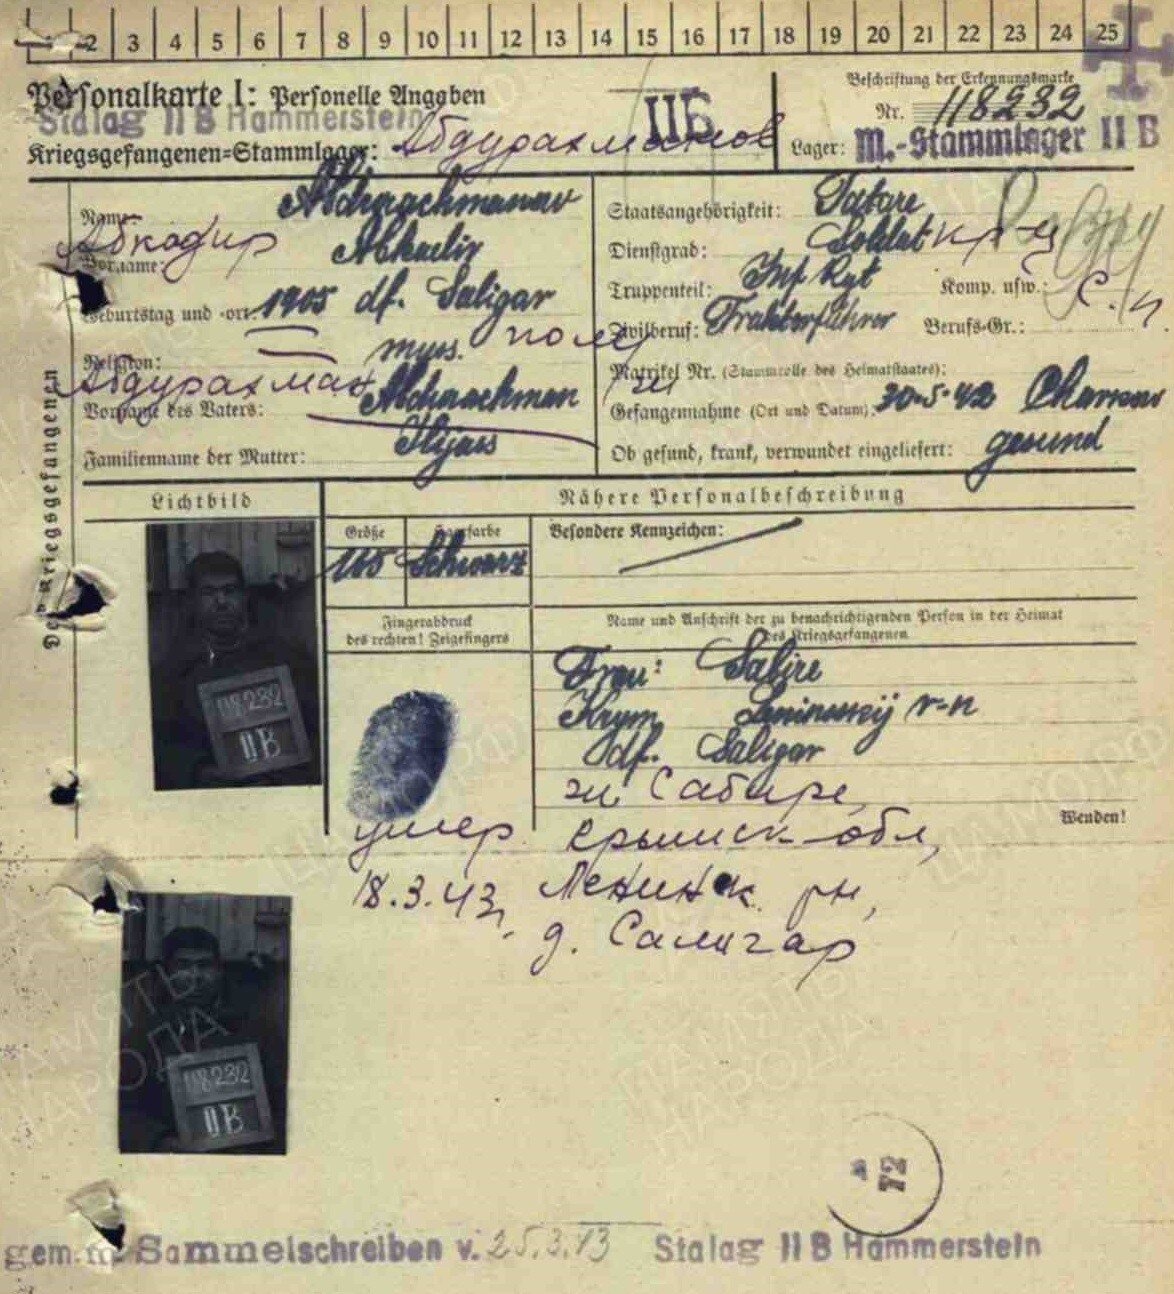 1 2 3 4 5 6 7 8 9 10 11 12 13 14 15 16 17 18 19 20 21 22 23 24 25
Personalkarte I: Personelle Angaben
Stalag II B Hammerstein
IIБ
Beschriftung der Erkennungsmarke
Nr. 118232
Kriegsgefangenen=Stammlager: Абдурахманов
Lager: M.-Stammlager II B
Des Kriegsgefangenen
Name: Abdurachmanow
Абкадир
Vorname: Abkadir
Geburtstag und -ort: 1905 df. Saligar
Religion: mus.
Абдурахман
Vorname des Vaters: Abdurachman
Familienname der Mutter: Iljass
Staatsangehörigkeit: Tatare
Dienstgrad: Soldat кр-ц
Truppenteil: Inf Rgt Komp. usw.:
с.п.
Zivilberuf: Traktorführer Berufs-Gr.:
Matrikel Nr. (Stammrolle des Heimatstaates):
Gefangennahme (Ort und Datum): 30.5.42
Ob gesund, krank, verwundet eingeliefert: gesund
Lichtbild
Nähere Personalbeschreibung
Größe Haarfarbe Besondere Kennzeichen:
165 Schwarz
Fingerabdruck
des rechten! Zeigefingers
Name und Anschrift der zu benachrichtigenden Person in der Heimat
des Kriegsgefangenen
Frau: Sabire
Krym Leninskij r-n
df. Saligar
Сабире,
Wenden!
118232
II B
умер Крымск обл,
18.3.43 Ленинск рн,
д. Салигар
118232
II B
72
gem. m. Sammelschreiben v. 25.3.43 Stalag II B Hammerstein
ПАМЯТЬ
НАРОДА
ЦАМО РФ